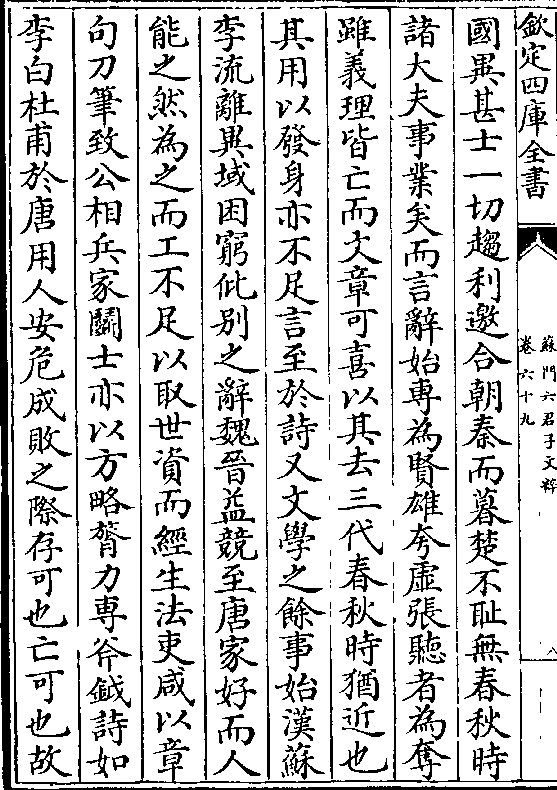 欽定四庫全書
蘇門六君子文粹
卷六十九
八
國異甚士一切趨利邀合朝秦而暮楚不恥無春秋時
諸大夫事業矣而言辭始専為賢雄夸虚張聽者為奪
雖義理皆亡而文章可喜以其去三代春秋時猶近也
其用以發身亦不足言至於詩又文學之餘事始漢蘇
李流離異域困窮仳别之辭魏晉益競至唐家好而人
能之然為之而工不足以取世資而經生法吏咸以章
句刀筆致公相兵家鬭士亦以方略膂力専斧鉞詩如
李白杜甫於唐用人安危成敗之際存可也亡可也故